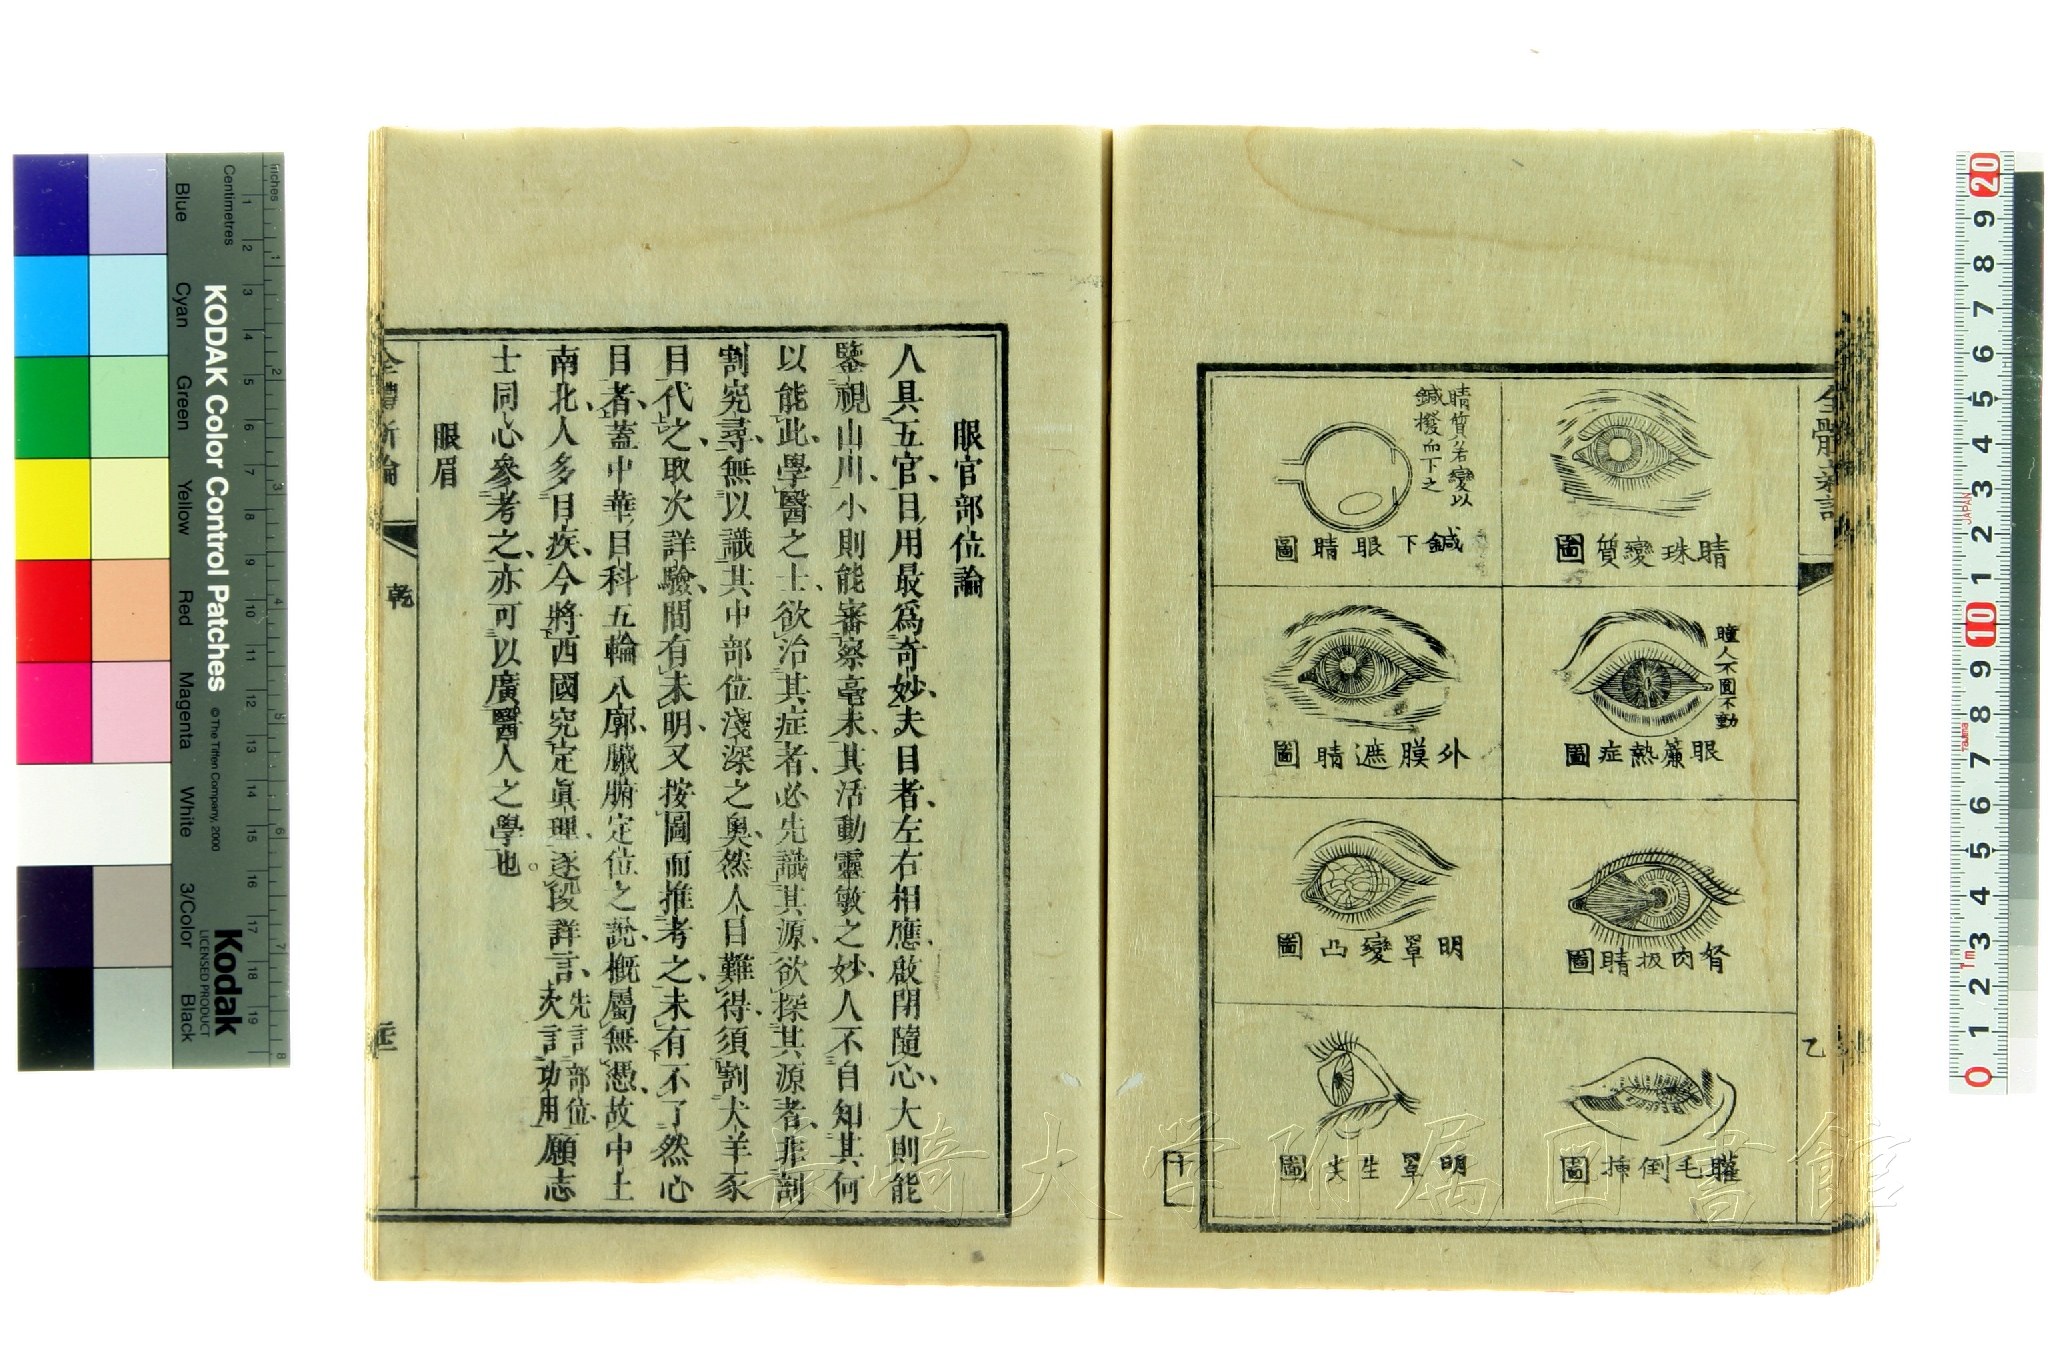 全體新論
乙
睛珠變質圖
睛質若變以
鍼撥而下之
鍼下眼睛圖
瞳人不圓不動
眼簾熱症圖
外膜遮睛圖
胬肉扳睛圖
明罩變凸圖
明罩生尖圖
十一
眼官部位論
人具五官、目用最爲奇妙、夫目者、左右相應、啟閉隨心、大則能
鑒視山川、小則能審察毫末、其活動靈敏之妙、人不自知其何
以能此、學醫之士、欲治其症者、必先識其源、欲探其源者、非割
割究尋、無以識其中部位淺深之奧、然人目難得、須割犬羊豕
目代之、取次詳驗、間有未明、又按圖而推考之、未有不了然心
目者、蓋中華目科五輪八廓、臟腑定位之說、概屬無憑、故中土
南北、人多目疾、今將西國究定眞理、逐段詳言、先言部位、次言功用願志
士同心參考之、亦可以廣醫人之學也。
眼眉
全體新論
乾
長崎大学附属図書館
KODAK Color Control Patches
© The Tiffen Company, 2000
Kodak
LICENSED PRODUCT
Inches
Centimetres
Blue
Cyan
Green
Yellow
Red
Magenta
White
3/Color
Black
1 2 3 4 5 6 7 8 9 10 11 12 13 14 15 16 17 18 19
1 2 3 4 5 6 7 8
20
9 8 7 6 5 4 3 2 1
JAPAN
10
9 8 7 6 5 4 3 2 1 0
Tajima
Tm